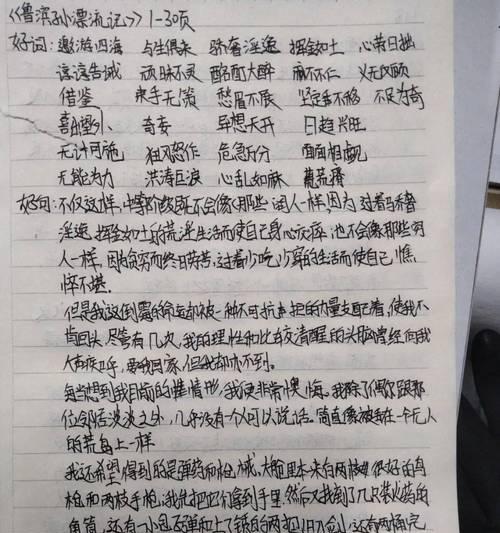 《鲁滨孙漂流记》1-30页
好词:遨游四海 与生俱来 骄奢淫逸 挥金如土 心劳日拙
谆谆告诫 顽昧不灵 酩酊大醉 麻不不仁 义无反顾
借鉴 束手无策 愁眉不展 坚定不移 不足为奇
喜出望外 奇妄 异想天开 日趋兴旺
无计可施 狂风怒作 危急万分 面面相觑
无能为力 洪涛巨浪 心乱如麻
好句:不仅这样,中等阶级既不会像那些阔人一样,因为过着骄奢
淫逸,挥金如土的荒淫生活而使自己身心疲瘁,也不会像那些穷
人一样,因为贫穷而终日劳苦,过着少吃少穿的生活而使自己憔
悴不堪.
但是我这倒霉的命运却被一种不可抗拒的力量支配着,使我不
肯回头,尽管有几次,我的理性和比较清醒的头脑曾经向我
大声疾呼,要我回家,但我却办不到。
每当想到我目前的情形,我便非常懊悔。我除了偶尔跟那
位邻居谈谈之外,几乎没有一个人可以说话。简直像被丢在一个无人
的荒岛上一样
我还希望得到的是弹药和枪械,大舱里本来有两枝很好的鸟
枪和两枝手枪,我先把它们拿到手里.然后又找到了几只装火药的
角筒,还有一小包子弹和上了锈的两把旧刀剑,还有两桶完